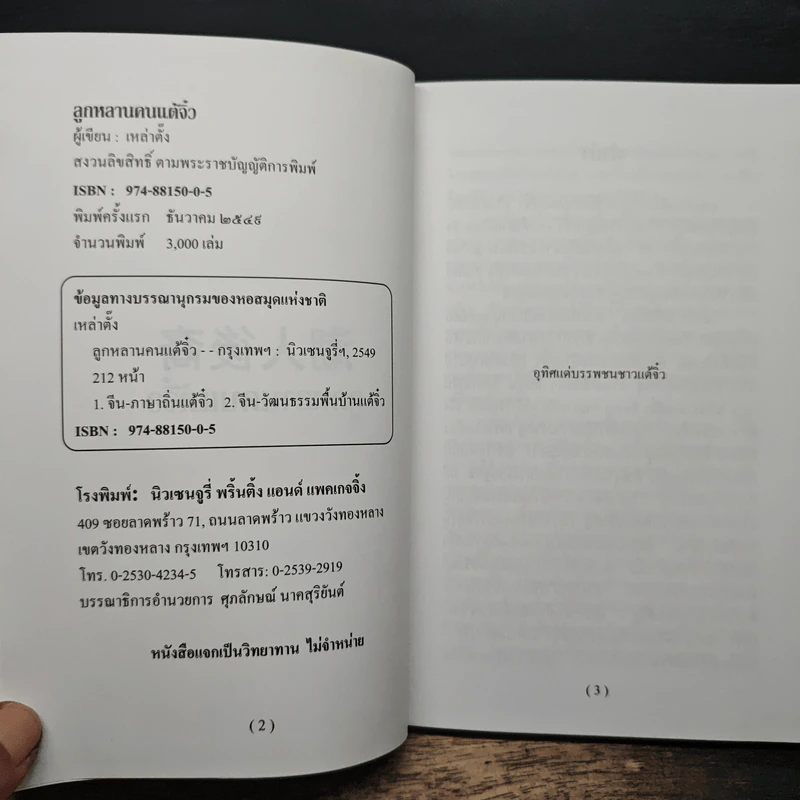 ลูกหลานคนแต้จิ๋ว
ผู้เขียน : เหล่าตั๊ง
สงวนลิขสิทธิ์ ตามพระราชบัญญัติการพิมพ์
ISBN : 974-88150-0-5
พิมพ์ครั้งแรก ธันวาคม ๒๕๔๙
จำนวนพิมพ์ 3,000 เล่ม
ข้อมูลทางบรรณานุกรมของหอสมุดแห่งชาติ
เหล่าตั๊ง
ลูกหลานคนแต้จิ๋ว - - กรุงเทพฯ : นิวเซนจูรี่ฯ, 2549
212 หน้า
1. จีน-ภาษาถิ่นแต้จิ๋ว 2. จีน-วัฒนธรรมพื้นบ้านแต้จิ๋ว
ISBN : 974-88150-0-5
โรงพิมพ์: นิวเซนจูรี่ พริ้นติ้ง แอนด์ แพคเกจจิ้ง
409 ซอยลาดพร้าว 71, ถนนลาดพร้าว แขวงวังทองหลาง
เขตวังทองหลาง กรุงเทพฯ 10310
โทร. 0-2530-4234-5 โทรสาร: 0-2539-2919
บรรณาธิการอำนวยการ ศุภลักษณ์ นาคสุริยันต์
หนังสือแจกเป็นวิทยาทาน ไม่จำหน่าย
( 2 )
อุทิศแด่บรรพชนชาวแต้จิ๋ว
( 3 )